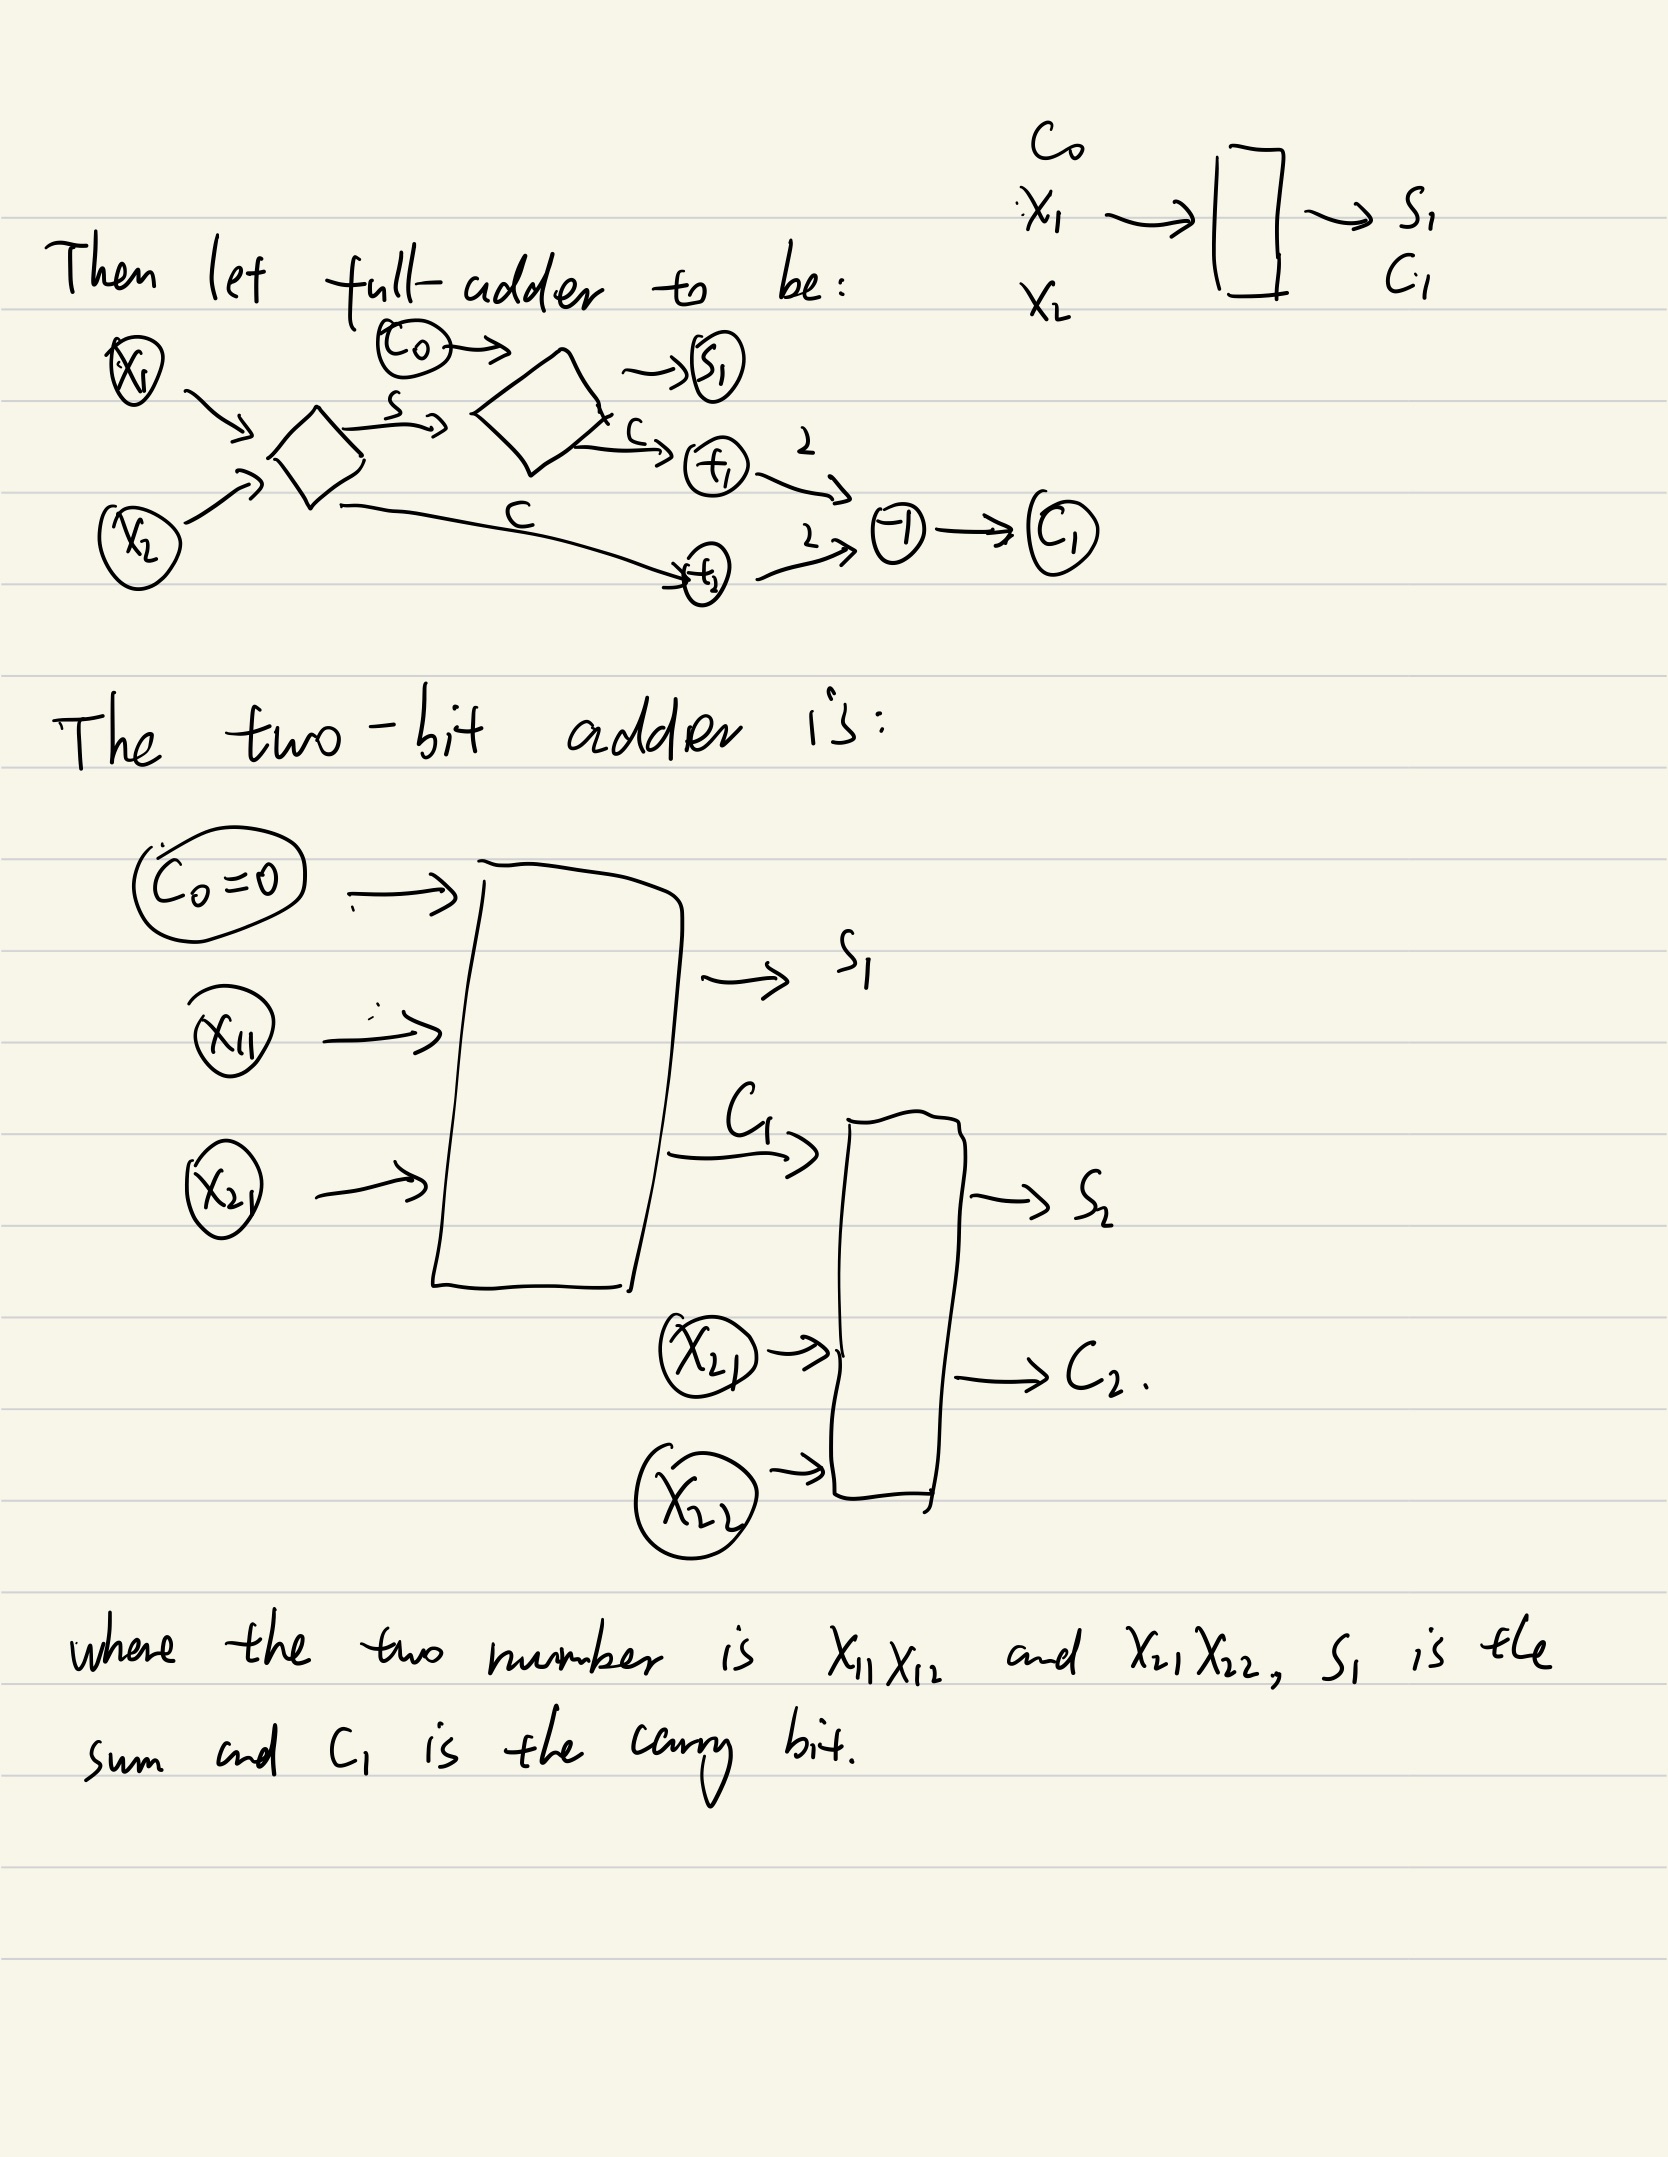 C₀
X₁ → S₁
X₂ C₁
Then let full-adder to be:
C₀ S₁
X₁ S
C 2
X₂ C 2 -1 C₁
The two-bit adder is:
C₀=0
S₁
X₁₁
C₁
X₂₁ S₂
X₂₁ C₂.
X₂₂
where the two number is X₁₁X₁₂ and X₂₁X₂₂, S₁ is the
sum and C₁ is the carry bit.